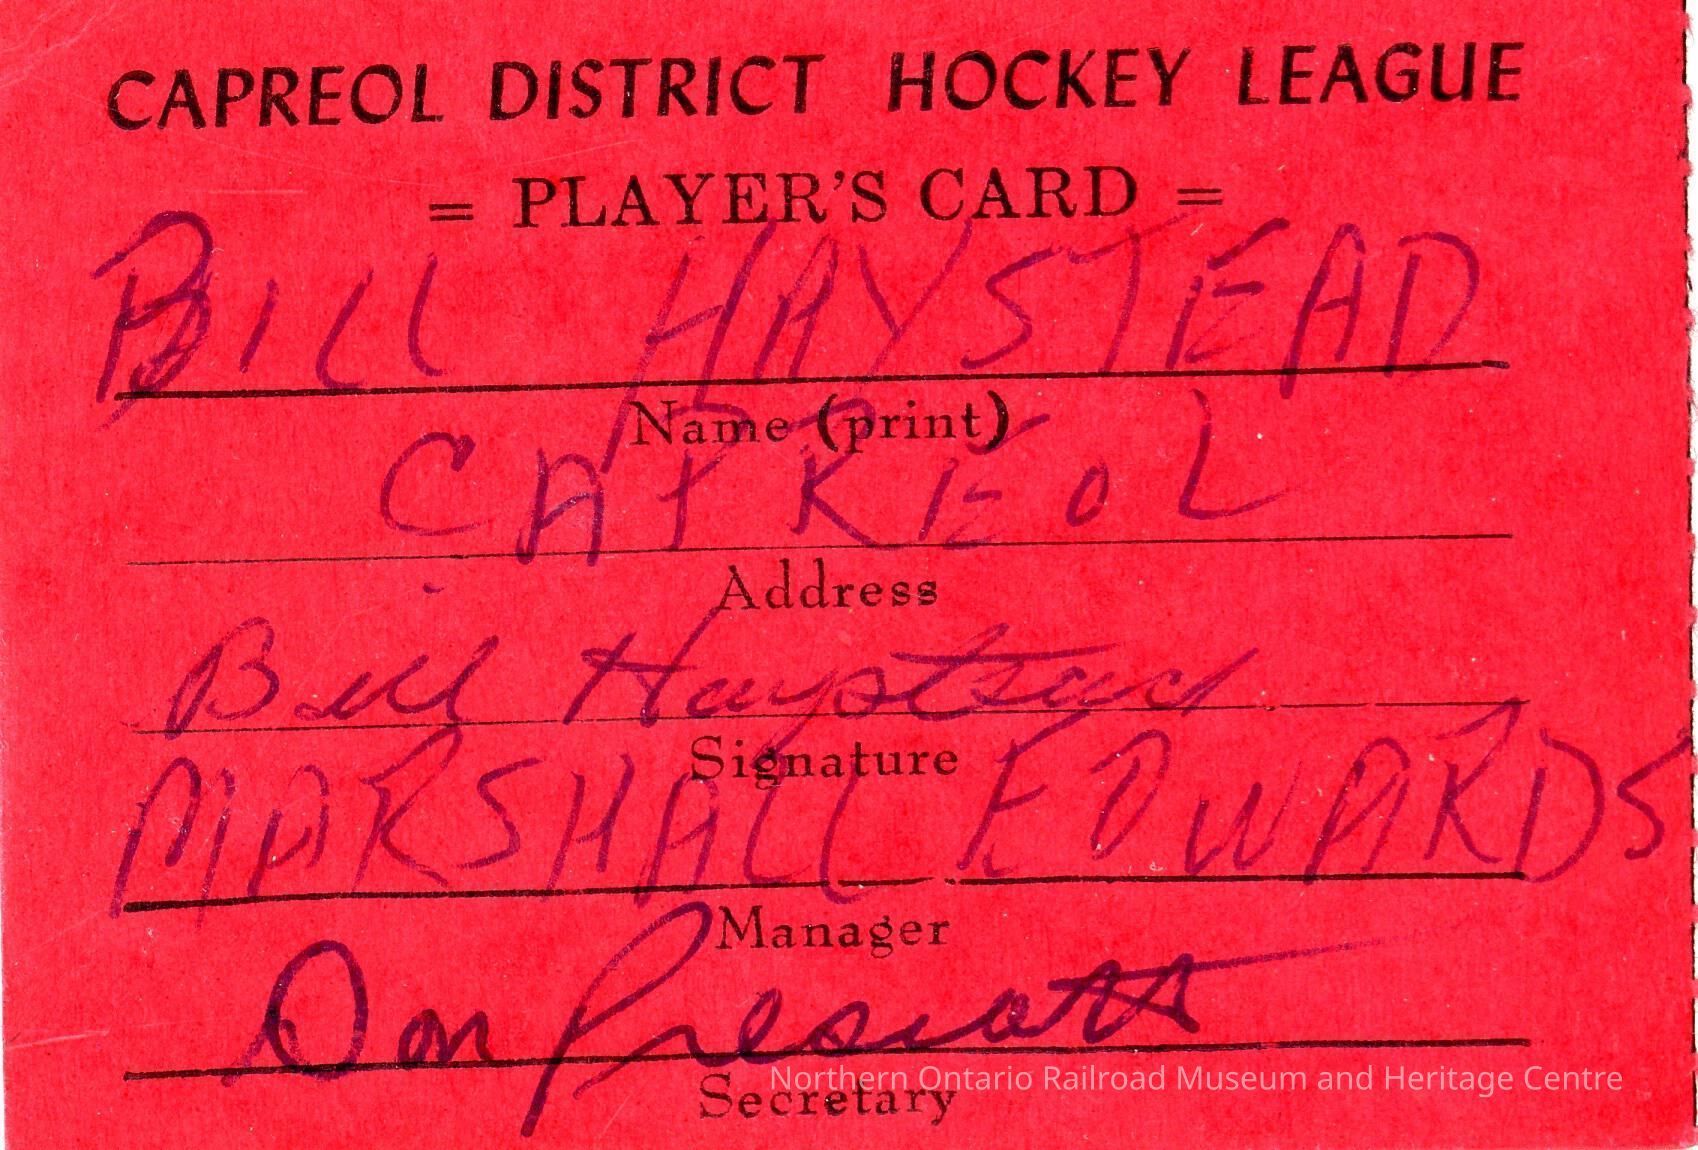 CAPREOL DISTRICT HOCKEY LEAGUE
= PLAYER'S CARD =
BILL HAYSTEAD
Name (print)
CAPREOL
Address
Bill Haystead
Signature
MARSHALL EDWARDS
Manager
Don Prescott
Northern Ontario Railroad Museum and Heritage Centre
Secretary